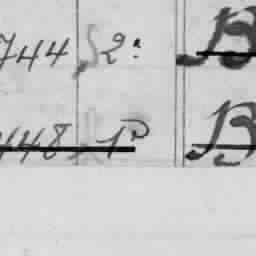 744 2ª B
448 1º B